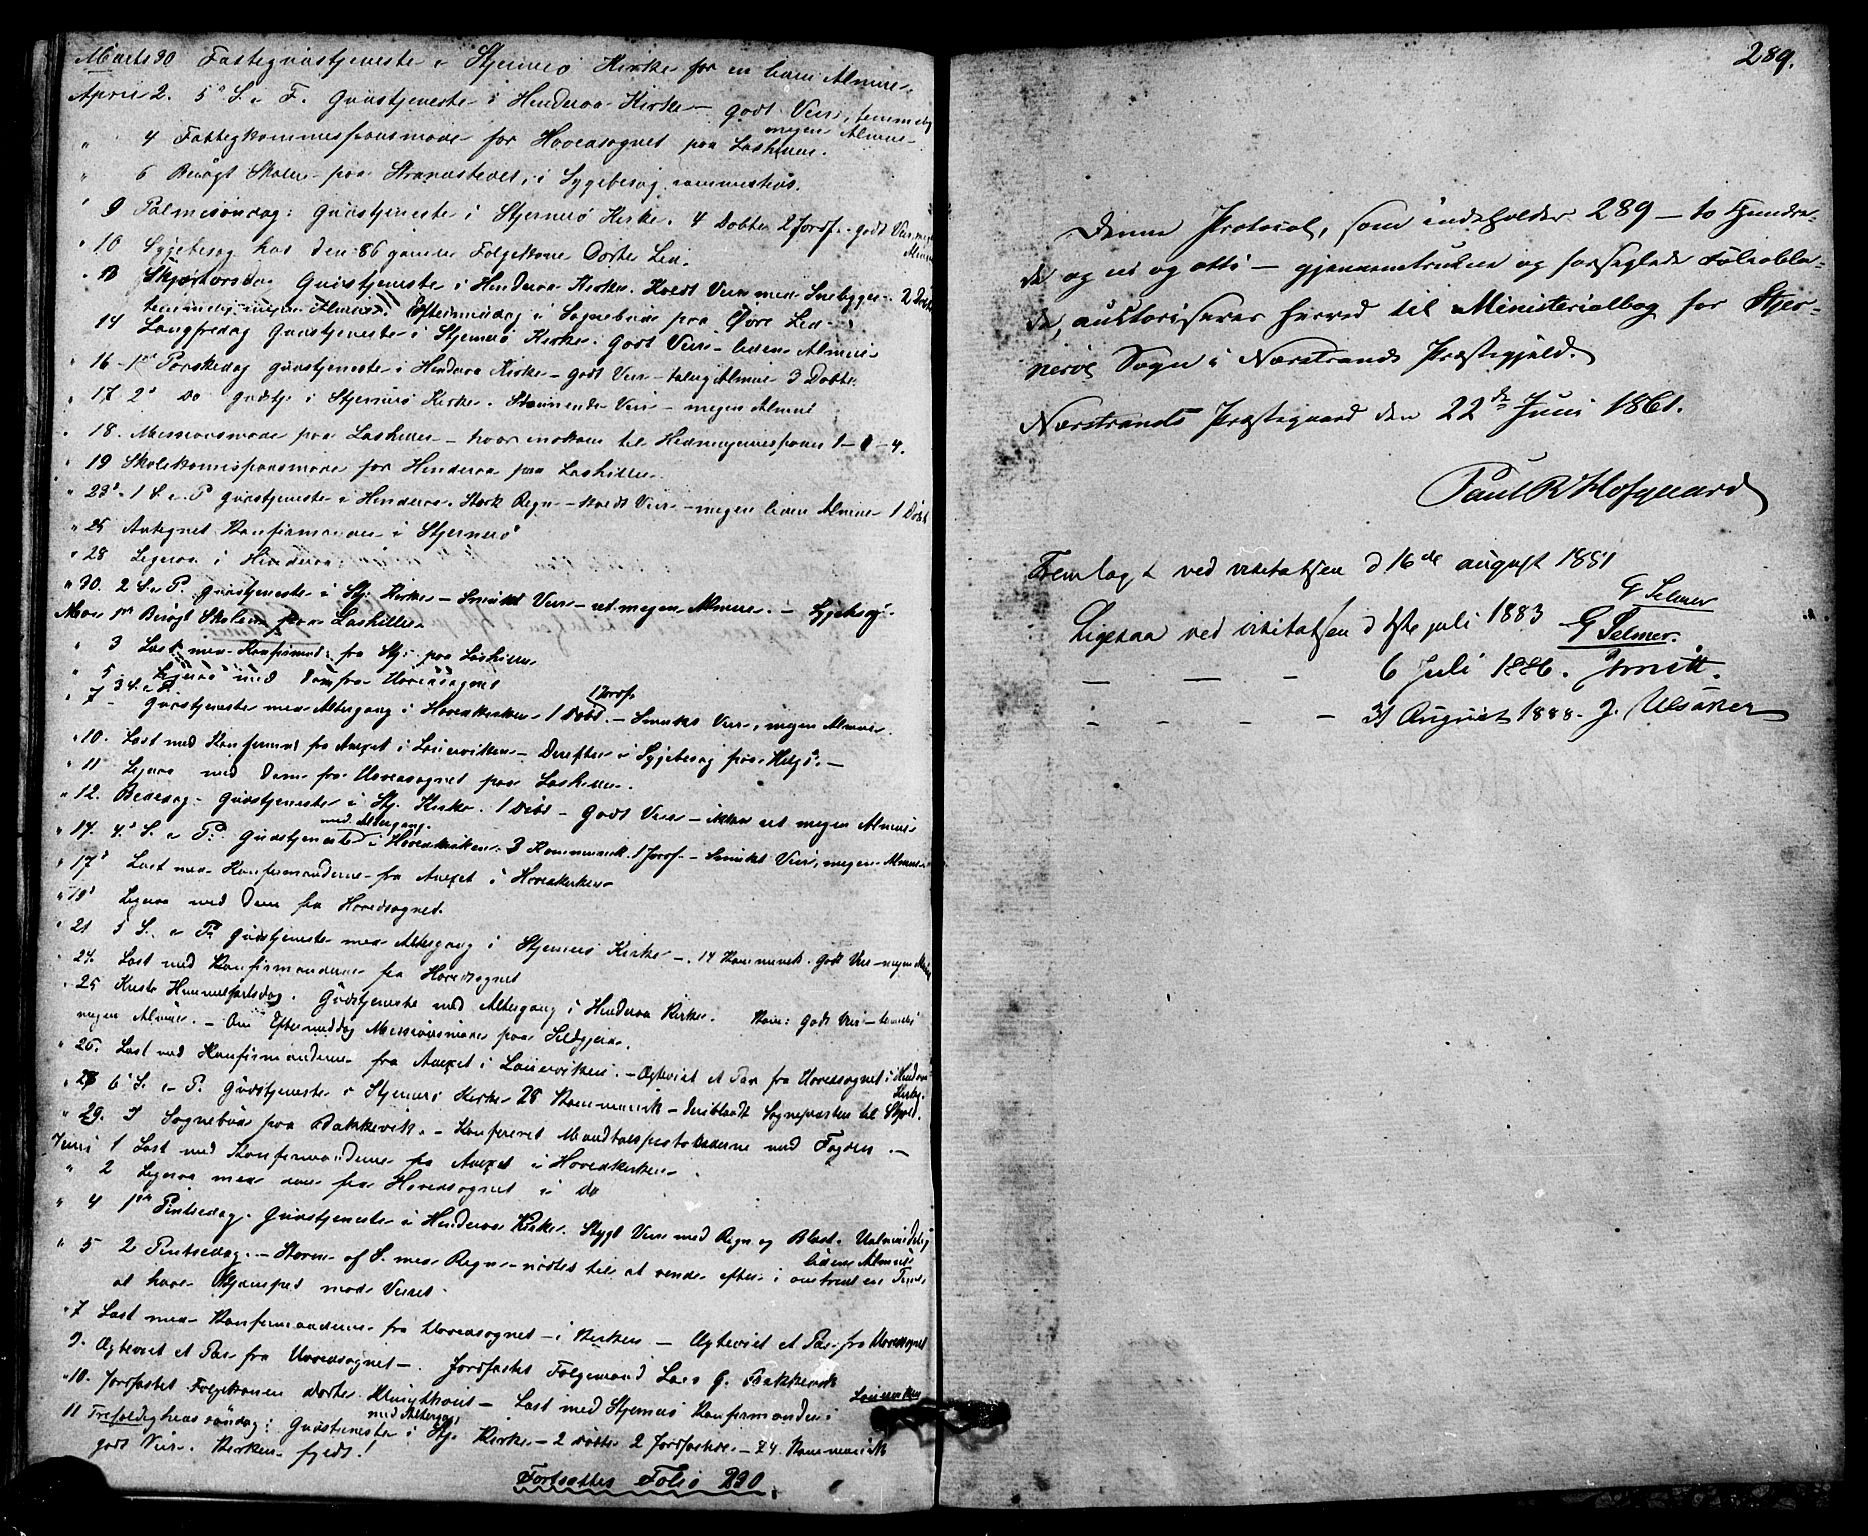 Marts 30 Fastegudstjeneste i Stjernerö Kirke for en liden Almue
April 2. 5 S. i F. Gudstjeneste i Hinderaa Kirke - godt Veir, temmelig
megen Almue
" 4 Fattigkommissionsmöde for Hovedsognet paa Lashillen.
" 6 Besögt Skolen paa Strandstedet, i Sygebesög sammesteds.
" 9 Palmesöndag: Gudstjeneste i Stjernerö Kirke. 4 Döbte 2 Jordf. godt Veir, megen
Almue
" 10 Sygebesög hos den 86 gamle Folgekone Dorte Lid.
" 13 Skjærtorsdag Gudstjeneste i Hinderaa Kirke. Koldt Veir med Snebyger. 2 Döbte
temmelig megen Almue. Eftermiddag i Sognebud paa Övre Lid
14 Langfredag Gudstjeneste i Stjernerö Kirke. Godt Veir - liden Almue
" 16 - 1ste Paaskedag Gudstjeneste i Hinderaa Kirke - godt Veir - talrig Almue 3 Döbte
" 17. 2 do Gudstj i Stjernerö Kirke. Veir - megen Almue
" 18. Missionsmöde paa Lashillen - hvor indkom til Hedningemissionen 1 - 1 - 4.
" 19 Skolekomissionsmöde for Hinderaa paa Lashillen.
" 23 - 1 S. e P Gudstjeneste i Hinderaa. Stærk Regn - koldt Veir - megen liden Almue 1 Döbt
" 25 Antegnet Konfirmander i Stjernerö
" 28 Ligesaa i Hinderaa
" 30. 2 S. e. P. Gudstjeneste i Stj. Kirke - Smukt Veir - ret megen Almue. - Sygebesög.
Mai 1ste Besögt Skolen paa Lashillen
" 3 Læst med Konfirmand: fra Stj. paa Lashillen
" 5 Ligesaa med dem fra Hovedsognet
" 7 3 S. e. P. Gudstjeneste med Altergang i Hovedkirken 1 Döbt. 1 Jordf. - Smukt Veir, megen Almue.
" 10. Læst med Konfirmand fra Anexet i Louisvikken - Derefter i Sygebesög paa Helgö. -
" 11 Ligesaa med dem fra Hovedsognet paa Lashillen.
" 12. Bededag. Gudstjeneste i Stj. Kirke. 1 Döbt - Godt Veir - ikke ret megen Almue
" 14. 4. S. e P. Gudstjeneste med Altergang i Hovedkirken. 3 Kommunik. 1 Jordf. - Smukt Veir, megen Almue
" 17 Læst med Konfirmanderne fra Anexet i Hovedkirken
" 19 Ligesaa med dem fra Hovedsognet.
" 21 5 S. e P. Gudstjeneste med Altergang i Stjernerö Kirke -. 14 Kommunik. Godt Veir - megen Almue
" 24. Læst med Konfirmanderne fra Hovedsognet
" 25 Kristi Himmelfartsdag. Gudstjeneste med Altergang i Hinderaa Kirke. Kom: Godt Veir - temmelig
megen Almue. - Om Eftermiddag Missionsmöde paa
" 26. Læst med Konfirmanderne fra Anexet i Louisvikken. - Ægteviet et Par fra Hovedsognet i Hinderaa
Kirke.
" 28 6 S. e P. Gudstjeneste i Stjernerö Kirke 28 Kommunik - deriblandt Sognepræsten til Skjold.
" 29. I Sognebud paa Bakkevik. - Konfereret Mandtalsprotokollerne med Fogden. -
Juni 1 Læst med Konfirmanderne fra Anexet i Hovedkirken
" 2 Ligesaa med dem fra Hovedsognet i do
" 4 1ste Pintsedag. Gudstjeneste i Hinderaa Kirke. Stygt Veir med Regn og Blæst. Ualmindelig
liden Almue
" 5 2 Pintsedag. - Storm af S. med Regn - nödtes til at vende efter i omtrent en Time
at have kjæmpet mod Veiret.
" 7 Læst med Konfirmanderne fra Hovedsognet - i Kirken - Ægteviet et Par fra Hovedsognet
9. Ægteviet et Par fra Hovedsognet -. Jordfæstet Folgemand Lars G. Bakkevik
" 10. Jordfæstet Folgekonen Dorte - Læst med Stjernerö Konfirmander i Louisvikken
11 Trefoldighedssöndag: Gudstjeneste med Altergang i Stj. Kirke - 2 Döbte 2 Jordfæstede - 24 Kommunik
godt Veir. Kirken fyldt!
Fortsættes Folio 290.
289.
Denne Protocol, som indeholder 289 - to Hundre-
de og ni og otti - gjennemtrukne og forseglede Folioblad-
de, auctoriseres herved til Ministerialbog for Stjer-
nerö Sogn i Nærstrands Præstegjeld.
Nærstrands Præstegaard den 22de Juni 1861.
Paul R Hofgaard
Fremlagt ved visitatsen d 16de august 1881
G Selmer
Ligesaa ved visitatsen d 1ste juli 1883 G Selmer.
— — — 6 Juli 1886. Smitt.
- - - - 31 August 1888. J. Ulsaker